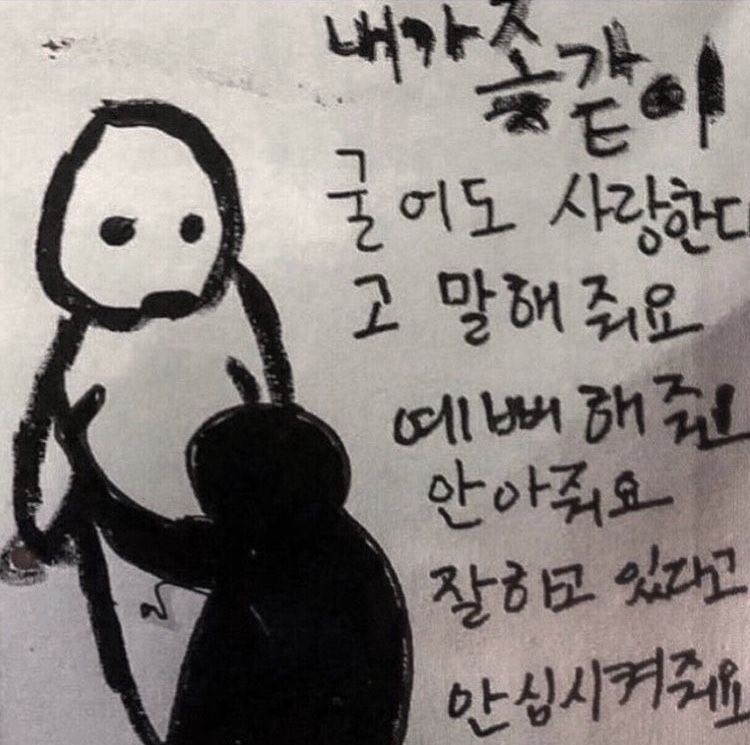 내가 좆같이
굴어도 사랑한다
고 말해 줘요
예뻐 해 줘요
안아줘요
잘하고 있다고
안심시켜줘요